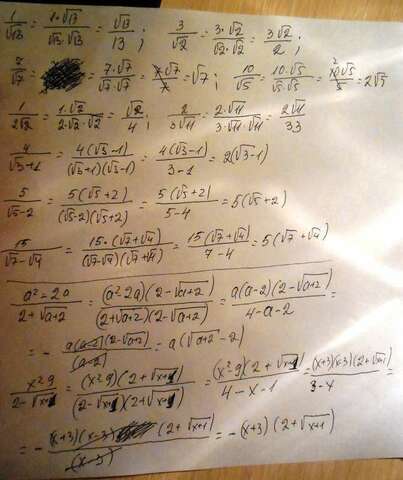 1/√13 = 1·√13/√13·√13 = √13/13 ; 3/√2 = 3·√2/√2·√2 = 3√2/2 ;
7/√7 = 7·√7/√7·√7 = 7·√7/7 = √7 ; 10/√5 = 10·√5/√5·√5 = 10√5/5 = 2√5
1/2√2 = 1·√2/2·√2·√2 = √2/4 ; 2/3√11 = 2·√11/3·√11·√11 = 2√11/33
4/√3+1 = 4(√3-1)/(√3+1)(√3-1) = 4(√3-1)/3-1 = 2(√3-1)
5/√5-2 = 5(√5+2)/(√5-2)(√5+2) = 5(√5+2)/5-4 = 5(√5+2)
15/√7-√4 = 15·(√7+√4)/(√7-√4)(√7+√4) = 15(√7+√4)/7-4 = 5(√7+√4)
a²-2a/2+√a+2 = (a²-2a)(2-√a+2)/(2+√a+2)(2-√a+2) = a(a-2)(2-√a+2)/4-a-2 =
= - a(a-2)(2-√a+2)/(a-2) = a(√a+2-2)
x²-9/2-√x+1 = (x²-9)(2+√x+1)/(2-√x+1)(2+√x+1) = (x²-9)(2+√x+1)/4-x-1 = (x+3)(x-3)(2+√x+1)/3-x =
= - (x+3)(x-3)(2+√x+1)/(x-3) = -(x+3)(2+√x+1)